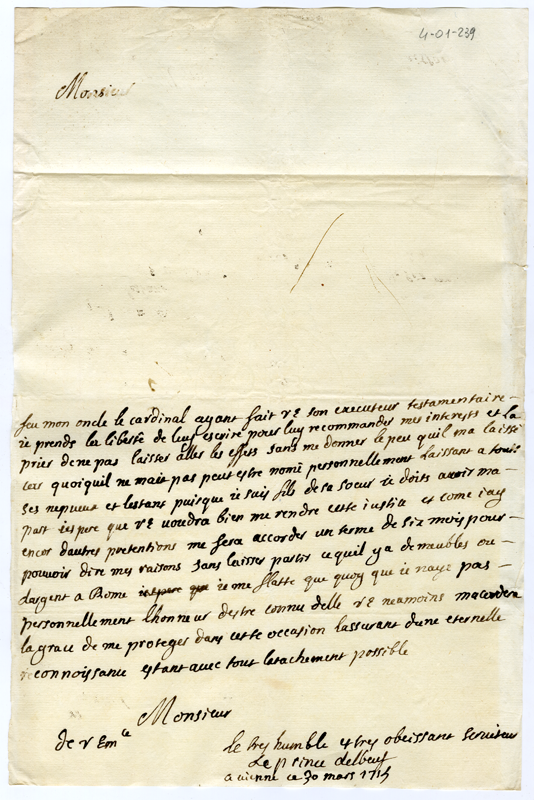 4-01-239
Monsieur
feu mon oncle le cardinal ayant fait v E son executeur testamentaire -
ie prends la liberté de luy escrire pour luy recommander mes interests et la
prier de ne pas laisser aller les effets sans me donner le peu quil ma laissé
car quoiquil ne maie pas peut estre nomé personnellement laissant a touts
ses nepueux et lestant puisque ie suis fils de sa soeur ie dois auoir ma -
part iespere que v E voudra bien me rendre cette iustice et come iay
encor dautres pretentions me fera accorder un terme de six mois pour -
pouvoir dire mes raisons sans laisser partir ce quil y a de meubles ou -
dargent a Rome iespere que ie me flatte que quoy que ie naye pas -
personnellement lhonneur destre connu delle v E neamoins macordera
la grace de me proteger dans cette occasion lassurant dune eternelle
reconnoissance estant avec tout latachement possible
Monsieur
de v Em ce
le tres humble et tres obeissant seruiteur
Le prince delbeuf
a vienne ce 30 mars 1715